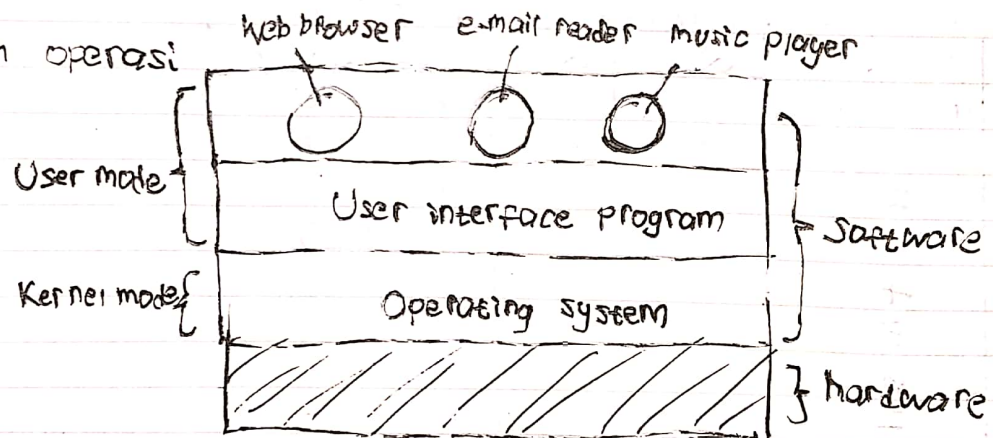 Web browser e-mail reader music player
operasi
User mode
User interface program
Software
Kernel mode
Operating system
hardware